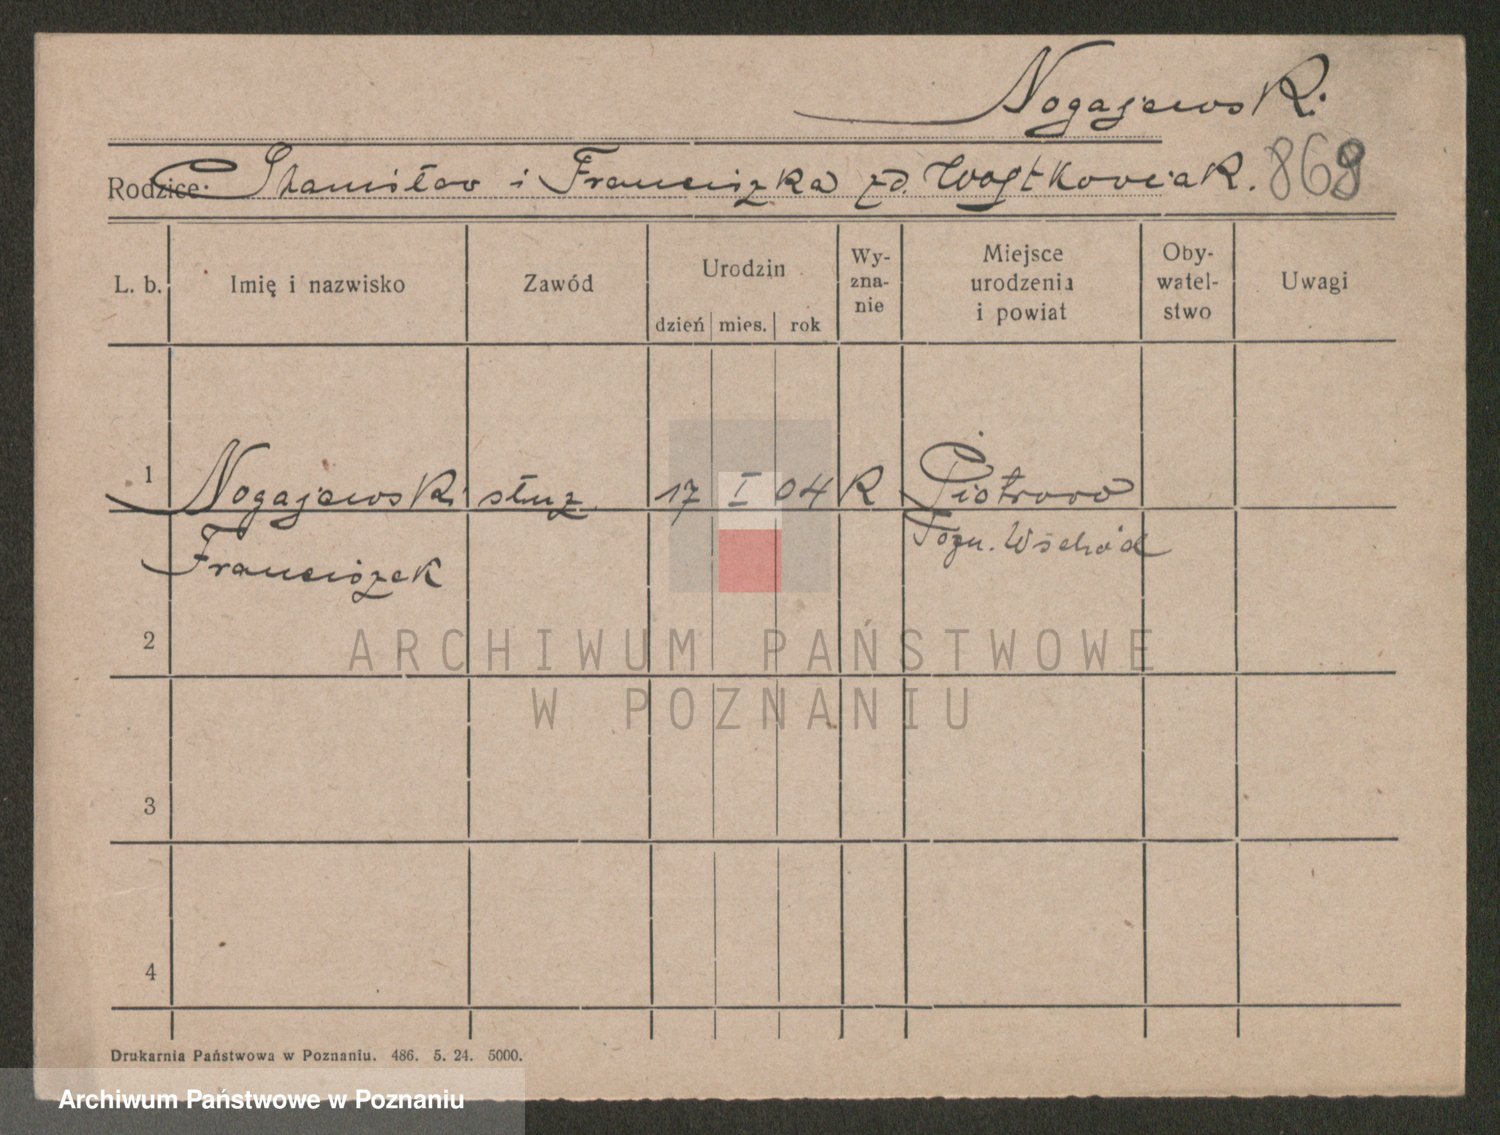 Nogajewski.
Rodzice: Stanisław i Franciszka zd. Wojtkowiak. 868
L. b. Imię i nazwisko Zawód Urodzin Wy-zna-nie Miejsce urodzenia i powiat Oby-watel-stwo Uwagi
dzień mies. rok
1 Nogajewski służ 17 I 04 R Piotrowo
Franciszek Pozn. Wschód
2
ARCHIWUM PAŃSTWOWE
W POZNANIU
3
4
Drukarnia Państwowa w Poznaniu. 486. 5. 24. 5000.
Archiwum Państwowe w Poznaniu